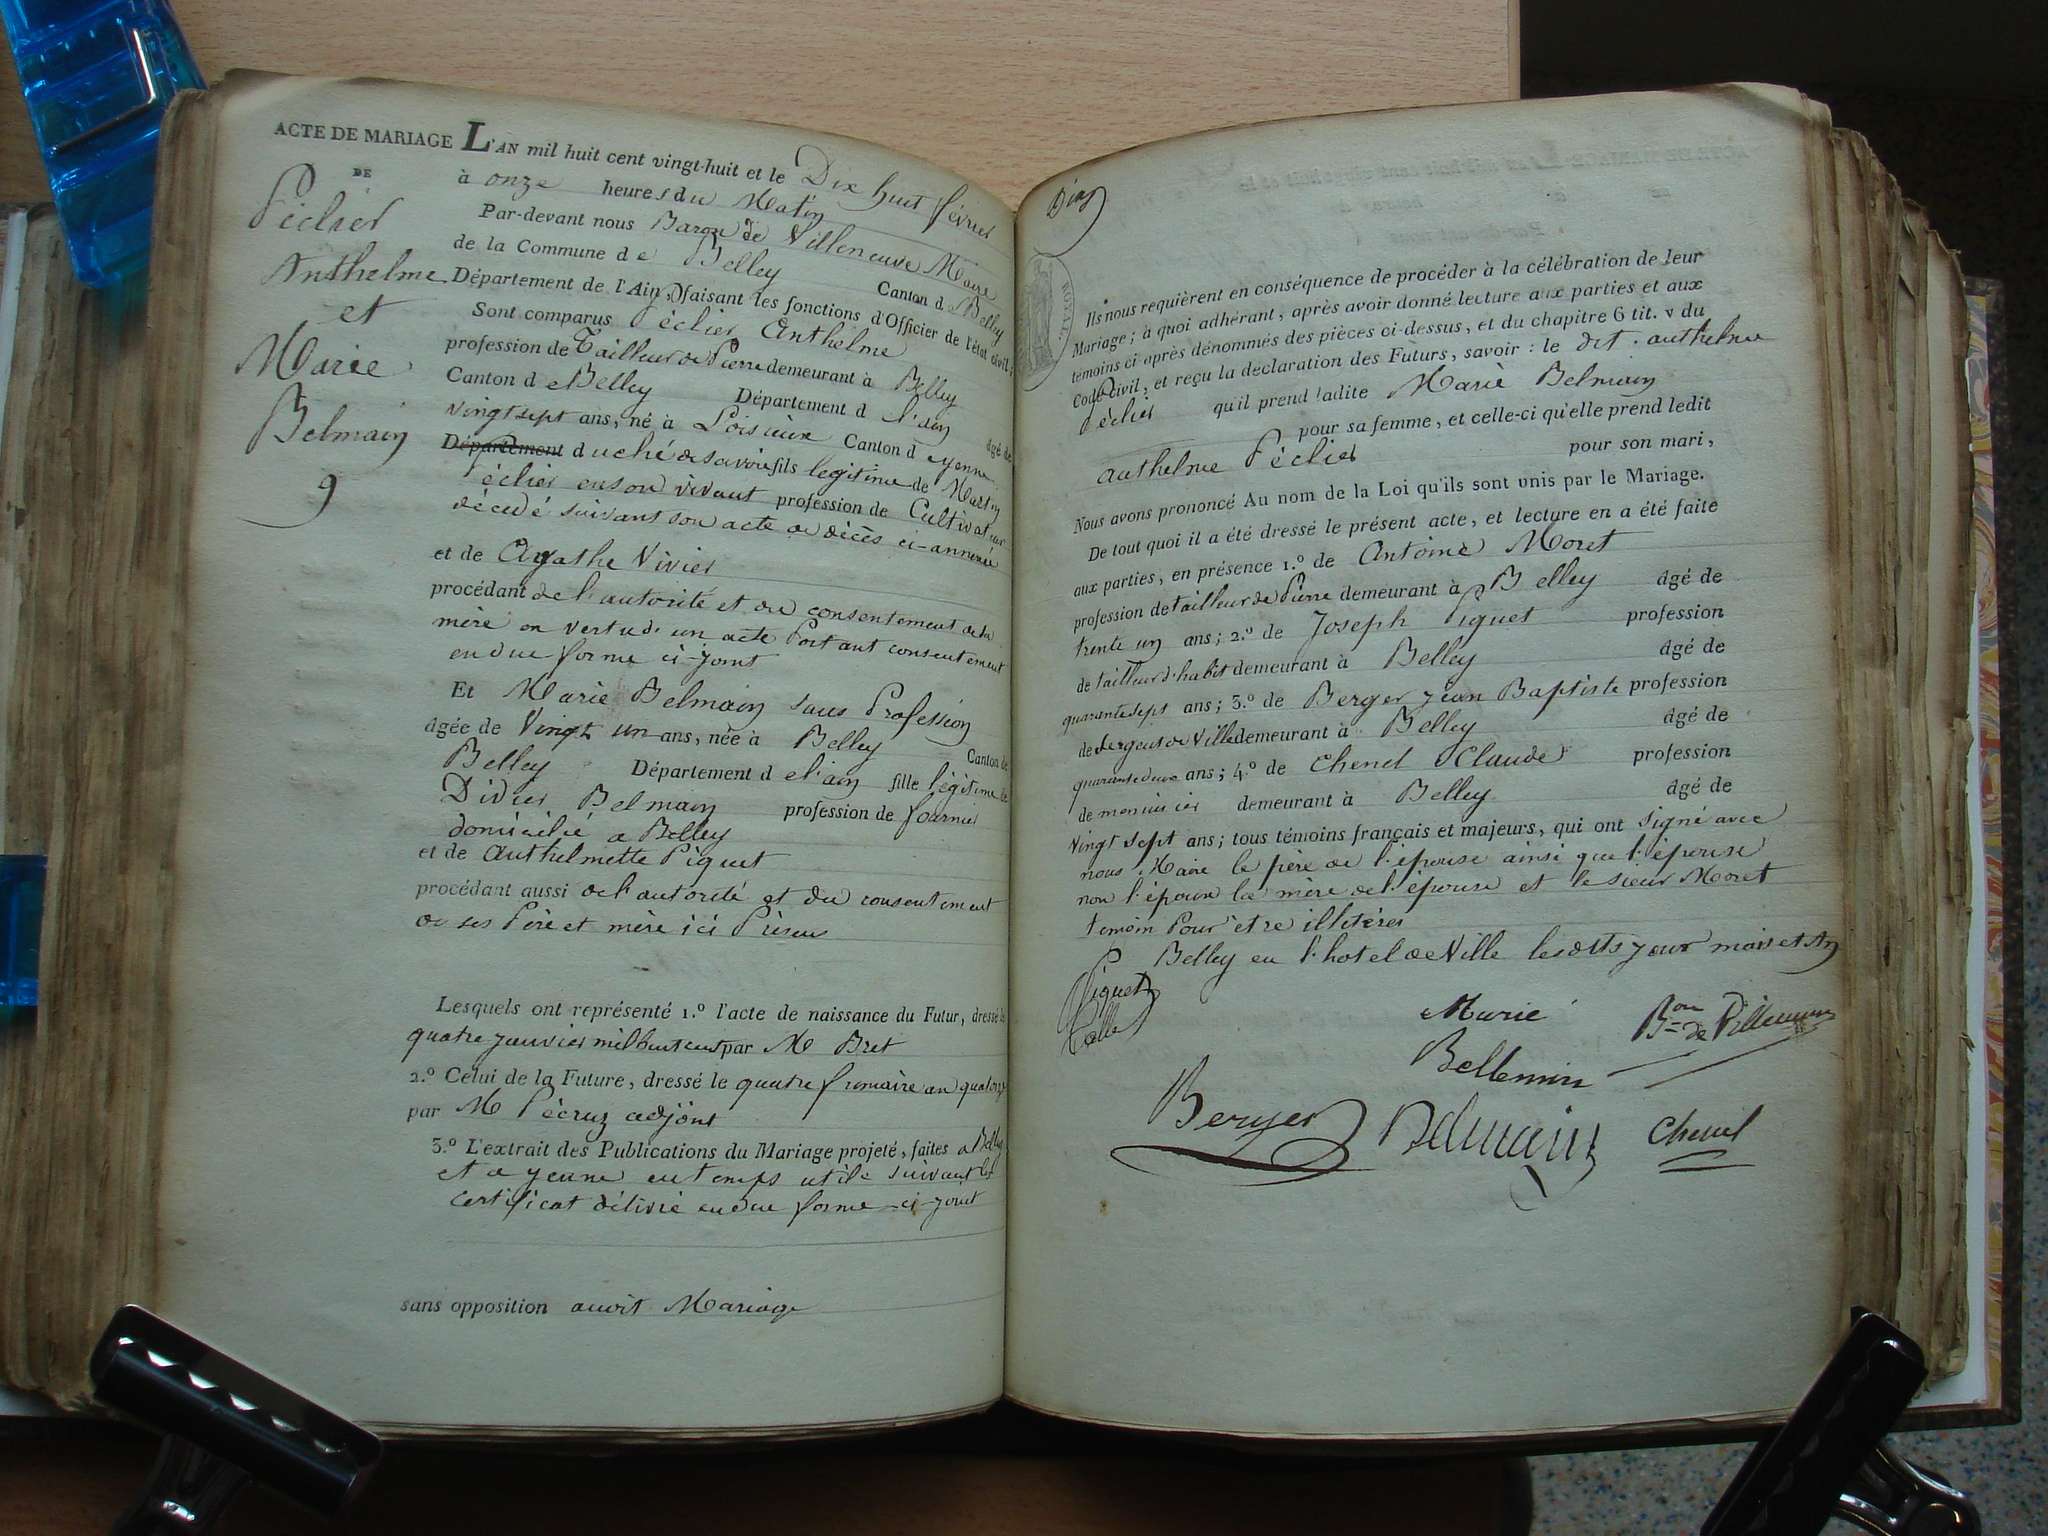 ACTE DE MARIAGE
DE
Péclier
Anthelme
et
Marie
Belmain
9
L'AN mil huit cent vingt-huit et le Dix huit février
à onze heures du Matin
Par-devant nous Baron de Villeneuve Maire
de la Commune de Belley Canton de Belley
Département de l'Ain, faisant les fonctions d'Officier de l'état civil;
Sont comparus Péclier Anthelme
profession de Tailleur de Pierre demeurant à Belley
Canton de Belley Département d l'ain âgé de
vingt sept ans, né à Loisieux Canton d yenne
Département duché de savoie fils legitime de Martin
Péclier en son vivant profession de Cultivateur
décédé suivant son acte de décès ci-annexée
et de Agathe Vivier
procédant de l'autorité et du consentement de sa
mère en vertu d'un acte Portant consentement
en due forme ci-joint
Et Marie Belmain sans Profession
âgée de Vingt un ans, née à Belley Canton de
Belley Département d el'ain fille légitime de
Didier Belmain profession de fournier
domicilié a Belley
et de Anthelmette Piquet
procédant aussi de l'autorité et du consentement
de ses Père et mère ici Présens
Lesquels ont représenté 1.º l'acte de naissance du Futur, dressé le
quatre janvier mil huit cent par M Bret
2.º Celui de la Future, dressé le quatre frimaire an quatorze
par M Pécruz adjoint
3.º L'extrait des Publications du Mariage projeté, faites a Belley
et a yenne en temps utile suivant les
certificat délivré en due forme ci-joint
sans opposition audit Mariage
Ils nous requièrent en conséquence de procéder à la célébration de leur
Mariage; à quoi adhérant, après avoir donné lecture aux parties et aux
témoins ci après dénommés des pièces ci-dessus, et du chapitre 6 tit. v du
Code civil, et reçu la déclaration des Futurs, savoir: le dit anthelme
Péclier qu'il prend ladite Marie Belmain
pour sa femme, et celle-ci qu'elle prend ledit
anthelme Péclier pour son mari,
Nous avons prononcé Au nom de la Loi qu'ils sont unis par le Mariage.
De tout quoi il a été dressé le présent acte, et lecture en a été faite
aux parties, en présence 1.º de Antoine Moret
profession de tailleur de Pierre demeurant à Belley âgé de
trente un ans; 2.º de Joseph Piquet profession
de tailleur d'habit demeurant à Belley âgé de
quarante sept ans; 3.º de Berger jean Baptiste profession
de sergent de Ville demeurant à Belley âgé de
quarante deux ans; 4.º de Chenel Claude profession
de menuisier demeurant à Belley âgé de
vingt sept ans; tous témoins français et majeurs, qui ont signé avec
nous Maire le père de l'épouse ainsi que l'épouse
non l'époux la mère de l'épouse et le sieur Moret
temoin Pour être illiteres
Belley en l'hotel de Ville les dits jour mois et An
Piquet
Marie
Bon de Villeneuve
Bellemin
Berger
Belmain
Chenel